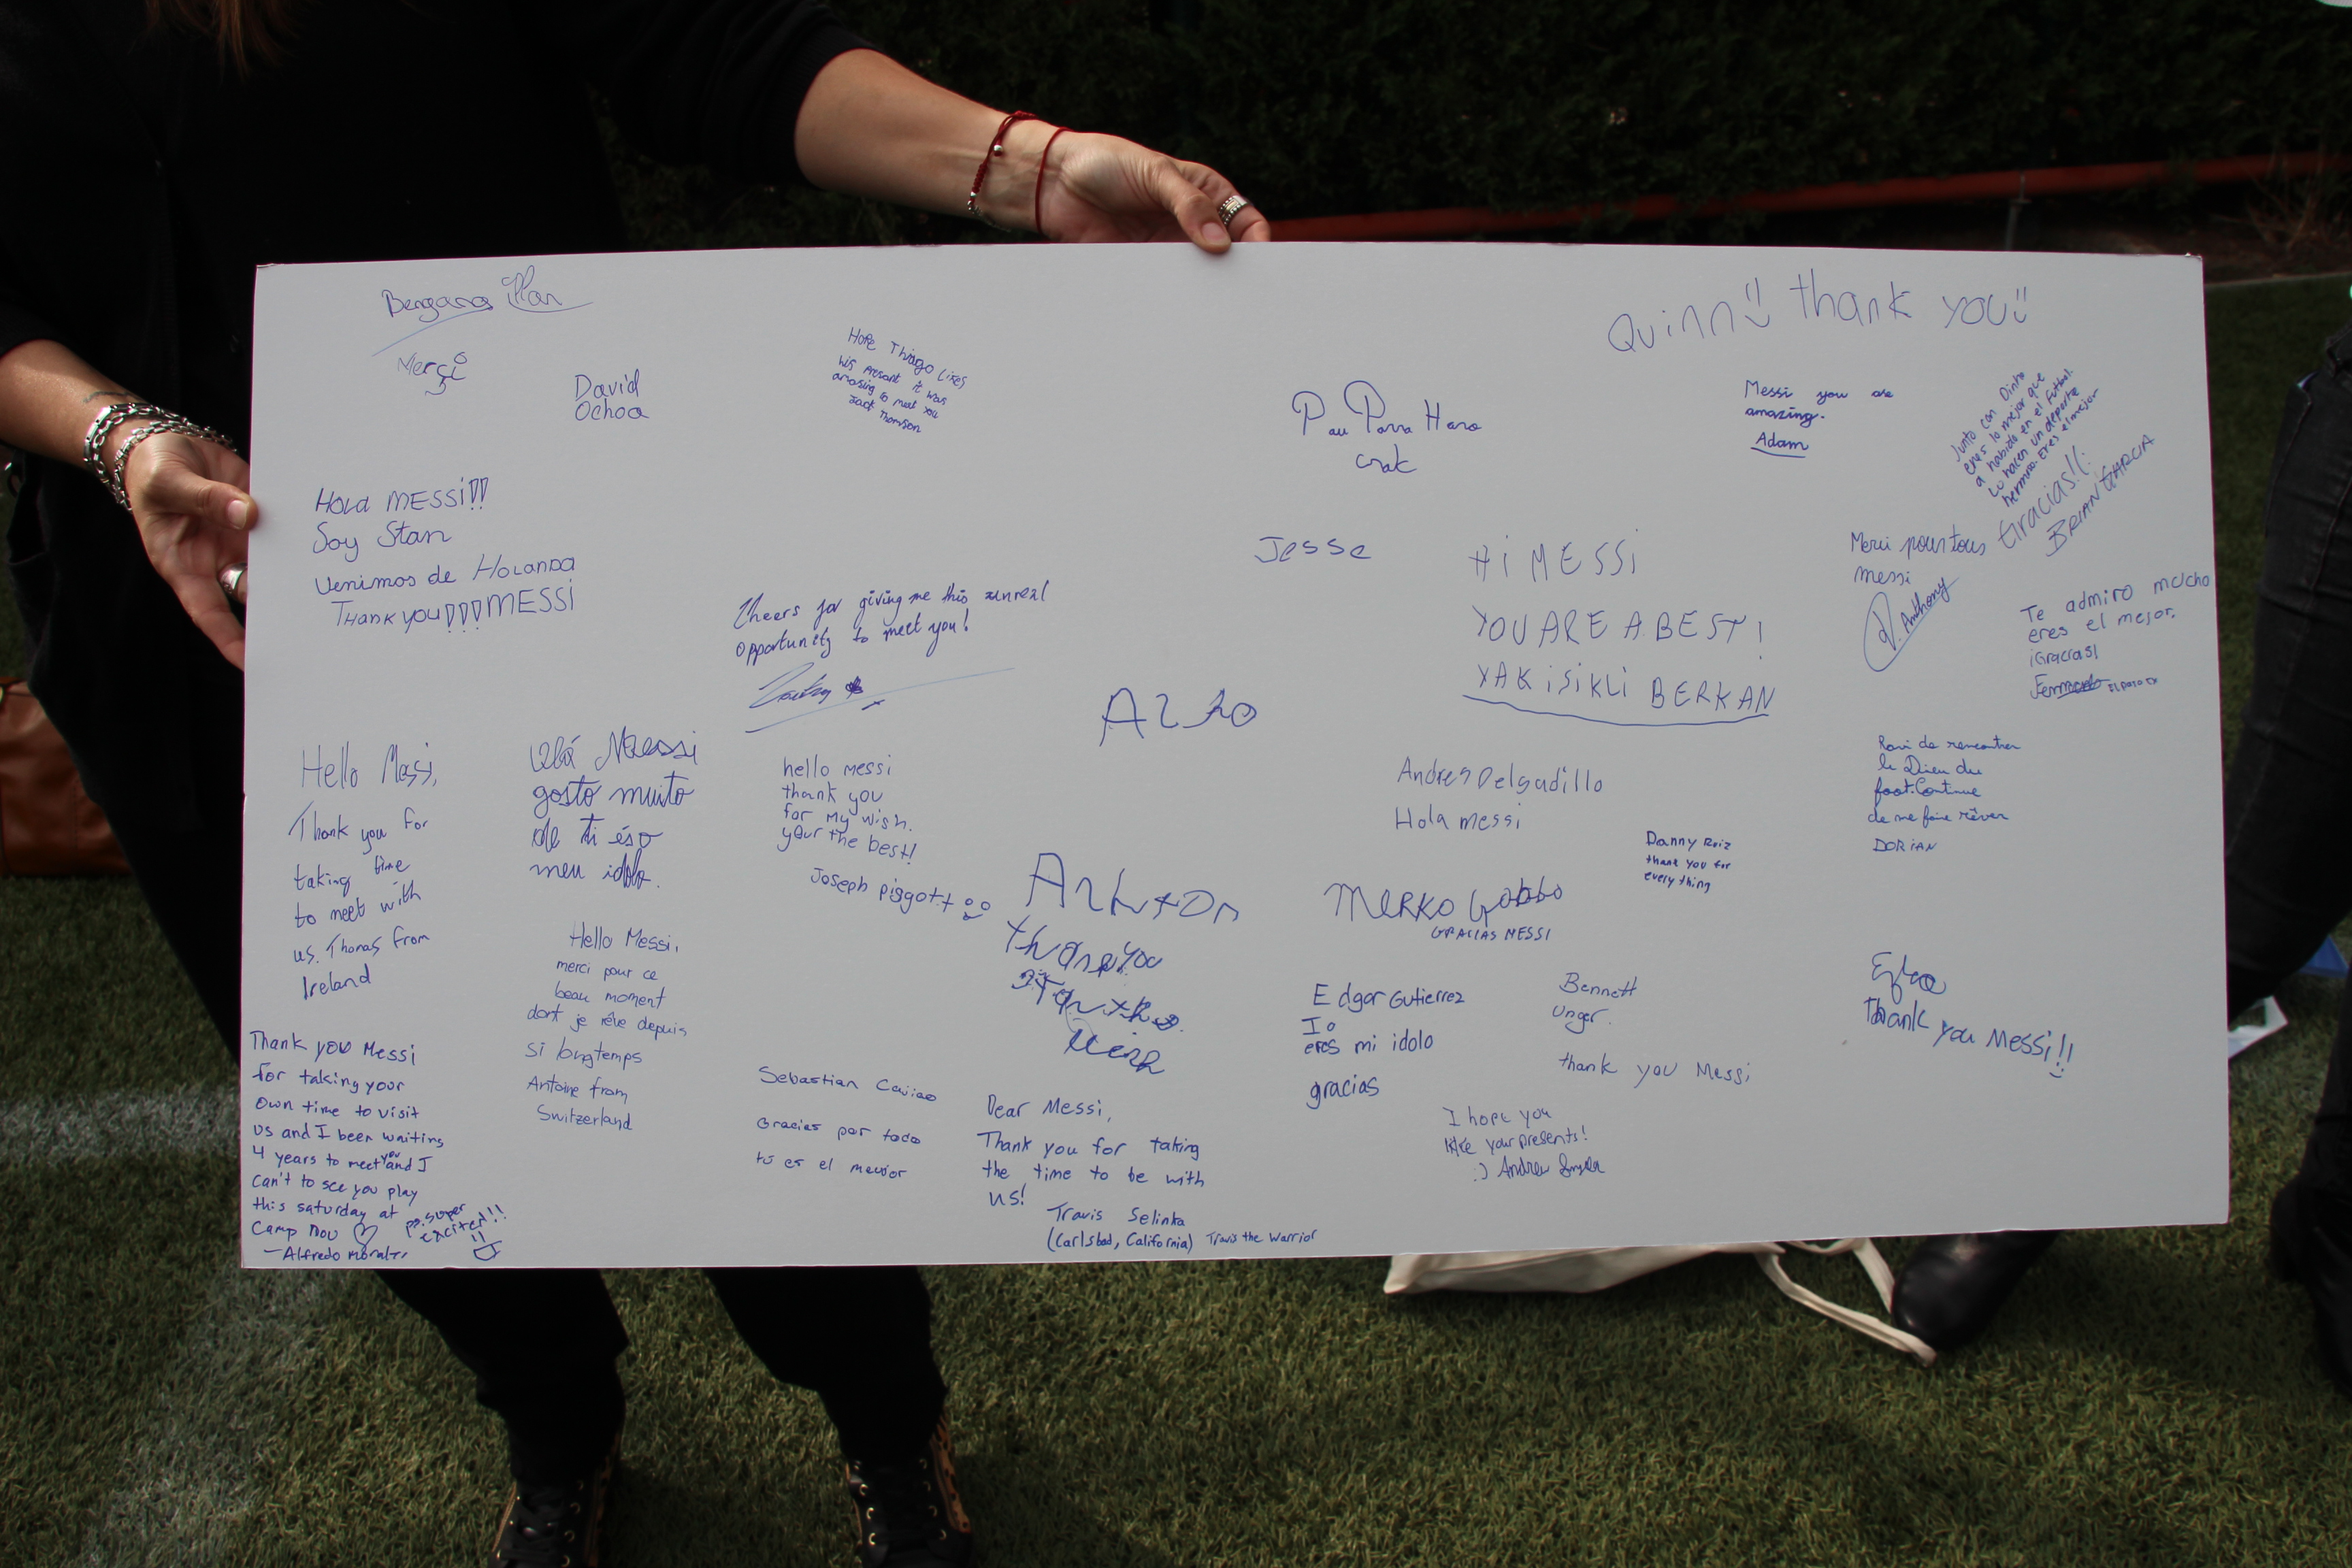 Merçi
David
Ochoa
Hope Thiago likes
his present it was
amazing to meet you
Jack Thomson
Quinn thank you
Pau Parra Haro
crak
Messi you are
amazing.
Adam
Junto con Dinho
eres lo mejor que
a habido en el futbol.
Lo hacen un deporte
hermoso. Eres el mejor
Gracias!!
BRIAN GARCIA
Hola MESSi!!!
Soy Stan
Venimos de HOLANDA
THANK you!!! MESSi
Cheers for giving me this surreal
opportunity to meet you!
Jesse
Hi MESSi
YOU ARE A BEST!
YAKiSiKLi BERKAN
Merci pour tous
messi
Anthony
Te admiro mucho
eres el mejor.
¡Gracias!
Hello Messi,
Thank you for
taking time
to meet with
us. Thomas from
Ireland
Olá Messi
gosto muito
de ti és o
meu idolo.
hello messi
thank you
for my wish.
your the best!
Joseph piggott
Andres Delgadillo
Hola messi
Danny Ruiz
thank you for
everything
Ravi de rencontrer
le Dieu du
foot. Continue
de me faire rêver
DORiAN
MERKO
GRACIAS MESSI
thank you
Hello Messi,
merci pour ce
beau moment
dont je rêve depuis
si longtemps
Antoine from
Switzerland
Edgar Gutierrez
Io
eres mi idolo
gracias
Bennett
Unger.
thank you Messi
Thank you Messi!!
Thank you Messi
for taking your
own time to visit
us and I been waiting
4 years to meet you and I
can't to see you play
this saturday at
Camp Nou
—Alfredo Morales
ps. super
excited!!!
Sebastian
Gracias por todo
tú es el
Dear Messi,
Thank you for taking
the time to be with
us!
Travis Selinka
(Carlsbad, California) Travis the Warrior
I hope you
like your presents!
:) Andrew